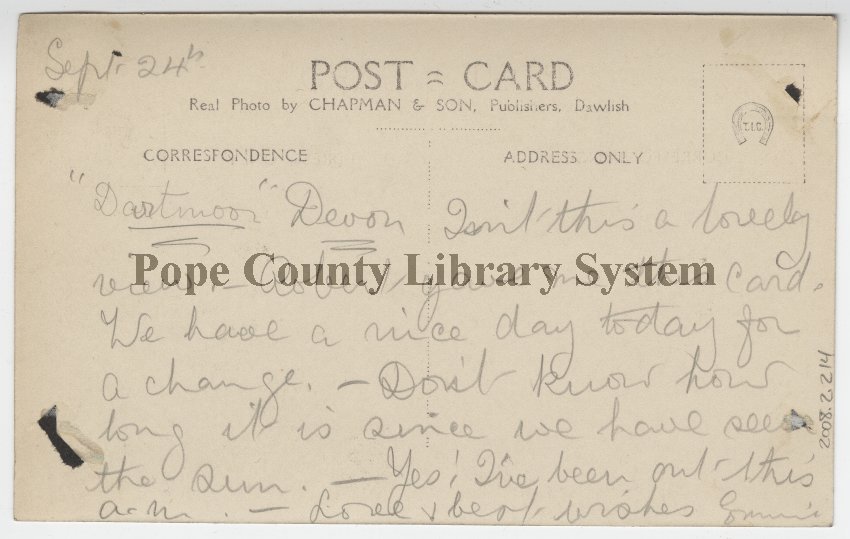 Sept. 24th
POST = CARD
Real Photo by CHAPMAN & SON, Publishers, Dawlish
T.I.C.
CORRESPONDENCE
ADDRESS ONLY
"Dartmoor" Devon Isn't this a lovely
view – Robert gave me this card.
Pope County Library System
We have a nice day today for
a change. – Don't know how
long it is since we have seen
the sun. – Yes! I've been out this
a.m. – Love & best wishes
2008.2.214